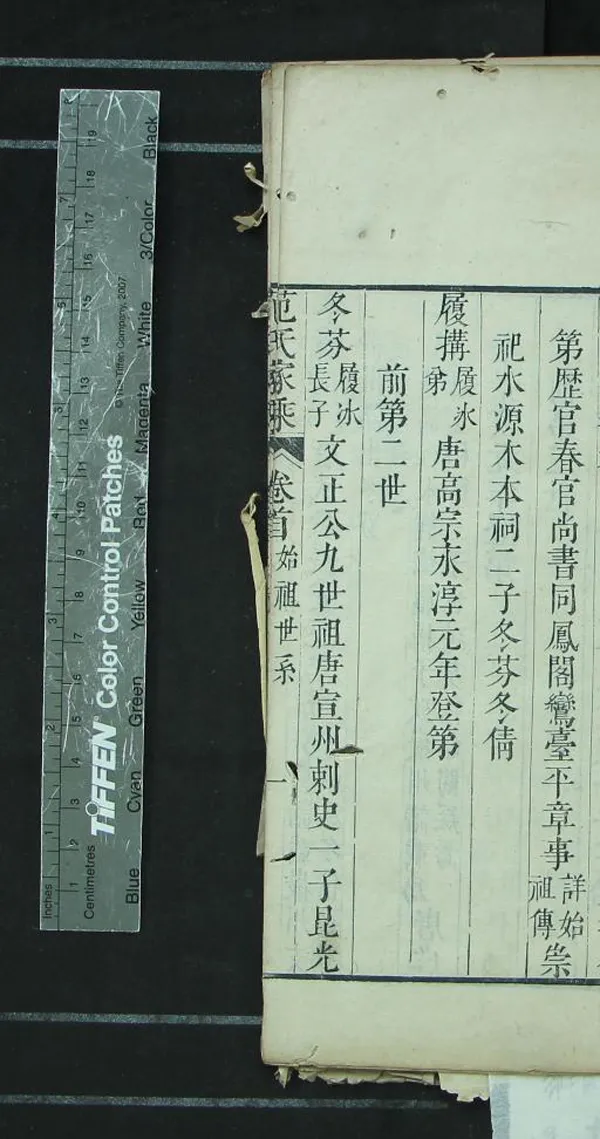 第歷官春官尚書同鳳閣鸞臺平章事詳始祖傳崇
祀水源木本祠二子冬芬冬倩
履搆履冰弟唐高宗永淳元年登第
前第二世
冬芬履冰長子文正公九世祖唐宣州刺史一子昆光
范氏家乘 卷首 始祖世系
Inches
Centimetres
1 2 3 4 5 6 7 8 9 10 11 12 13 14 15 16 17 18 19
TIFFEN Color Control Patches
© The Tiffen Company, 2007
Blue Cyan Green Yellow Red Magenta White 3/Color Black